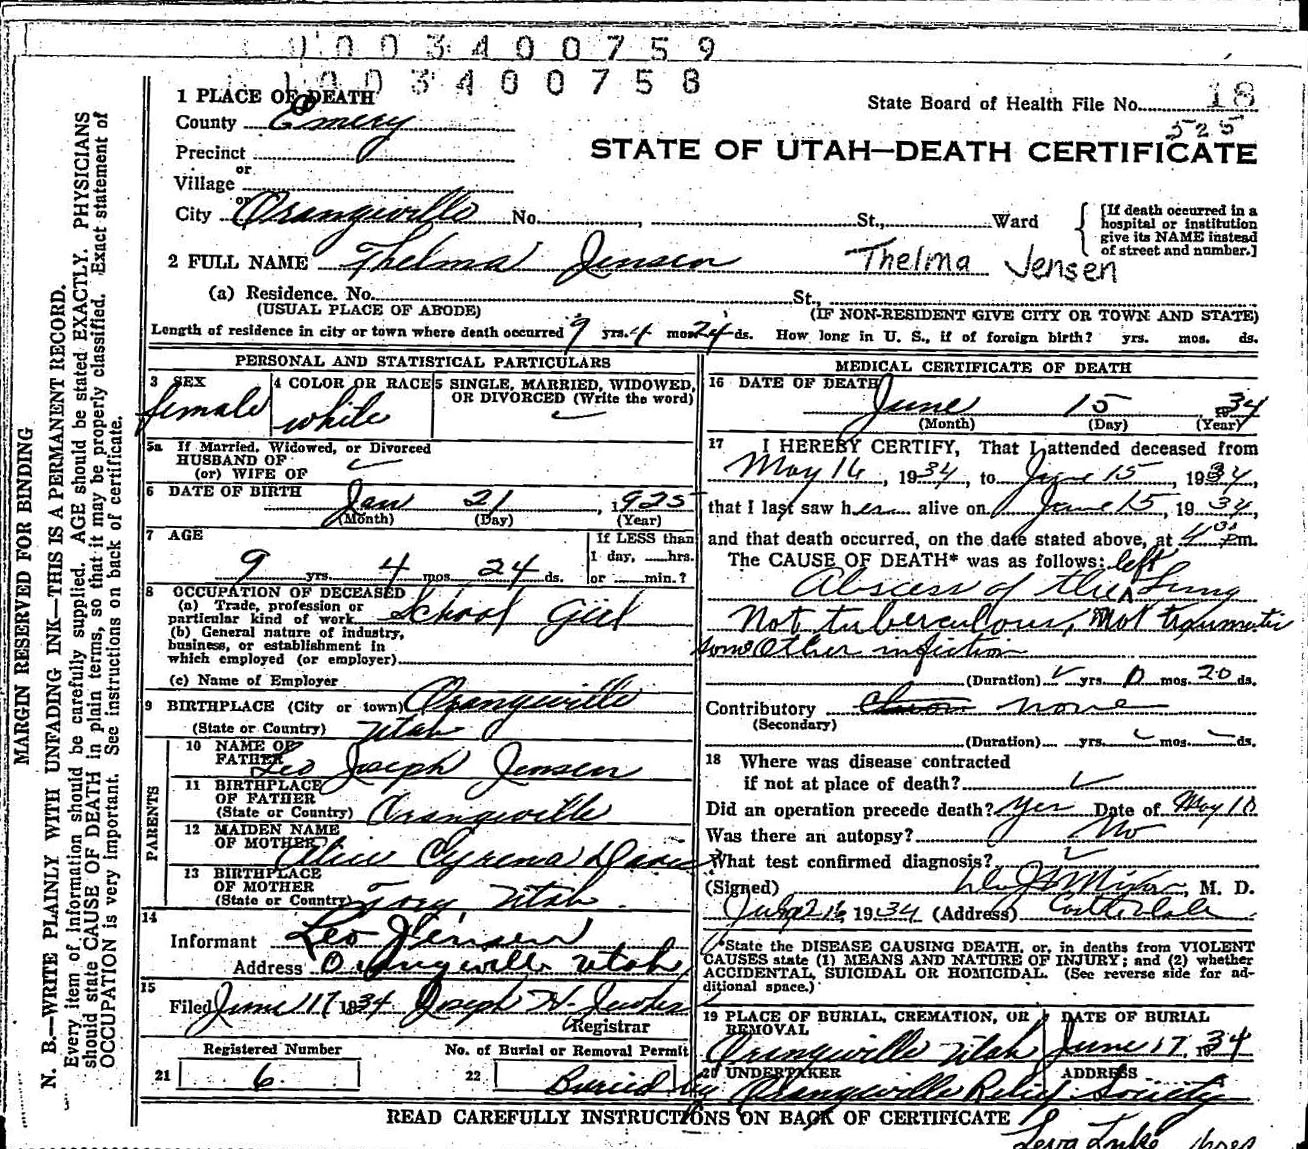 1003400759
1003400758
1 PLACE OF DEATH
County Emery
State Board of Health File No. 18
525
STATE OF UTAH—DEATH CERTIFICATE
Precinct
or
Village
or
City Orangeville No. , St., Ward
[If death occurred in a
hospital or institution
give its NAME instead
of street and number.]
2 FULL NAME Thelma Jensen Thelma Jensen
(a) Residence. No. St.,
(USUAL PLACE OF ABODE) (IF NON-RESIDENT GIVE CITY OR TOWN AND STATE)
Length of residence in city or town where death occurred 9 yrs. 4 mos. 24 ds. How long in U. S., if of foreign birth? yrs. mos. ds.
PERSONAL AND STATISTICAL PARTICULARS
3 SEX 4 COLOR OR RACE 5 SINGLE, MARRIED, WIDOWED,
OR DIVORCED (Write the word)
female white
5a If Married, Widowed, or Divorced
HUSBAND OF
(or) WIFE OF
6 DATE OF BIRTH
Jan 21, 1925
(Month) (Day) (Year)
7 AGE
If LESS than
1 day, hrs.
9 yrs. 4 mos. 24 ds. or min.?
8 OCCUPATION OF DECEASED
(a) Trade, profession or
particular kind of work School Girl
(b) General nature of industry,
business, or establishment in
which employed (or employer)
(c) Name of Employer
9 BIRTHPLACE (City or town) Orangeville
(State or Country) Utah
PARENTS
10 NAME OF
FATHER Leo Joseph Jensen
11 BIRTHPLACE
OF FATHER
(State or Country) Orangeville
12 MAIDEN NAME
OF MOTHER Alice Cyrena Davis
13 BIRTHPLACE
OF MOTHER
(State or Country) Utah
14
Informant Leo Jensen
Address Orangeville Utah
15
Filed June 17 1934 Joseph H. Jewkes
Registrar
Registered Number No. of Burial or Removal Permit
21 6 22 Buried by
MEDICAL CERTIFICATE OF DEATH
16 DATE OF DEATH
June 15 1934
(Month) (Day) (Year)
17 I HEREBY CERTIFY, That I attended deceased from
May 16, 1934, to June 15, 1934,
that I last saw her alive on June 15, 1934,
and that death occurred, on the date stated above, at 4 30 P.m.
The CAUSE OF DEATH* was as follows: left
Abscess of the Lung
Not tuberculous, Not traumatic
some Other infection
(Duration) yrs. 0 mos. 20 ds.
Contributory none
(Secondary)
(Duration) yrs. mos. ds.
18 Where was disease contracted
if not at place of death?
Did an operation precede death? yes Date of May 10
Was there an autopsy? No
What test confirmed diagnosis?
(Signed) Nixon, M. D.
1934 (Address) Castle Dale
*State the DISEASE CAUSING DEATH, or, in deaths from VIOLENT
CAUSES state (1) MEANS AND NATURE OF INJURY; and (2) whether
ACCIDENTAL, SUICIDAL OR HOMICIDAL. (See reverse side for ad-
ditional space.)
19 PLACE OF BURIAL, CREMATION, OR DATE OF BURIAL
REMOVAL
Orangeville Utah June 17, 1934
20 UNDERTAKER ADDRESS
Orangeville Relief Society
READ CAREFULLY INSTRUCTIONS ON BACK OF CERTIFICATE
Leva Luke
MARGIN RESERVED FOR BINDING
N. B.—WRITE PLAINLY WITH UNFADING INK—THIS IS A PERMANENT RECORD.
Every item of information should be carefully supplied. AGE should be stated EXACTLY. PHYSICIANS
should state CAUSE OF DEATH in plain terms, so that it may be properly classified. Exact statement of
OCCUPATION is very important. See instructions on back of certificate.